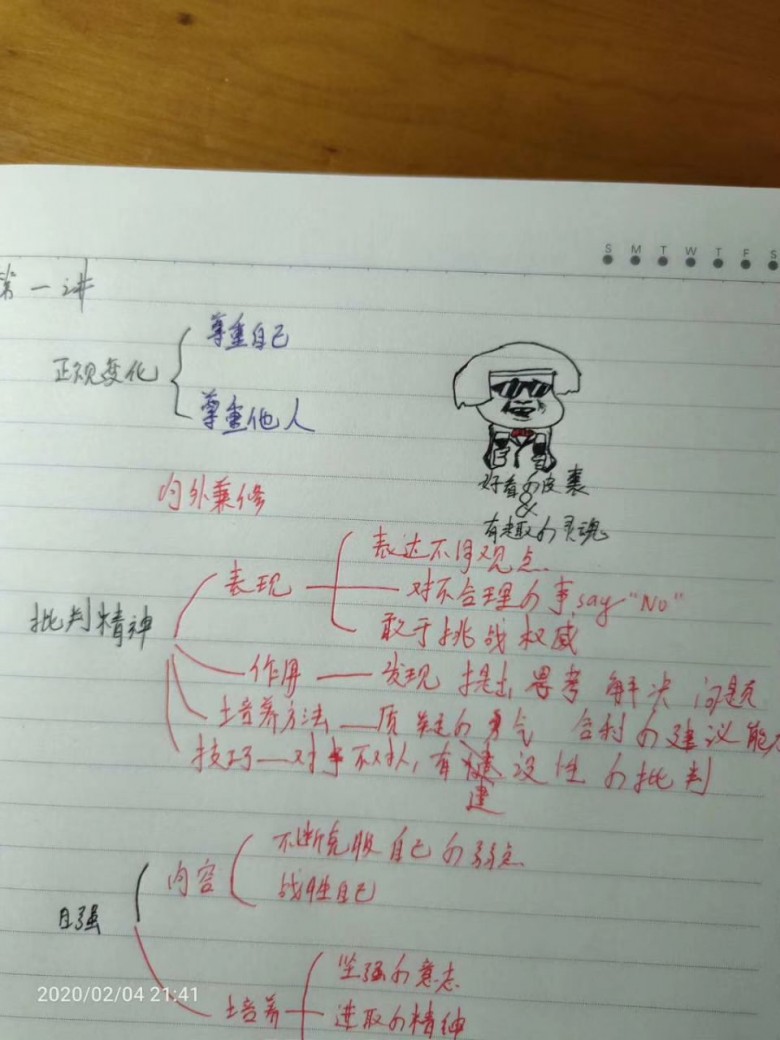 S M T W T F S
第一讲
正视变化
尊重自己
尊重他人
好看的皮囊
&
有趣的灵魂
内外兼修
批判精神
表现
表达不同观点
对不合理的事say“No”
敢于挑战权威
作用 — 发现 提出 思考 解决 问题
培养方法 — 质疑的勇气 合利的建议能
技巧 — 对事不对人,有建设性的批判
建
自强
内容
不断克服自己的弱点
战胜自己
培养
坚强的意志
进取的精神
2020/02/04 21:41